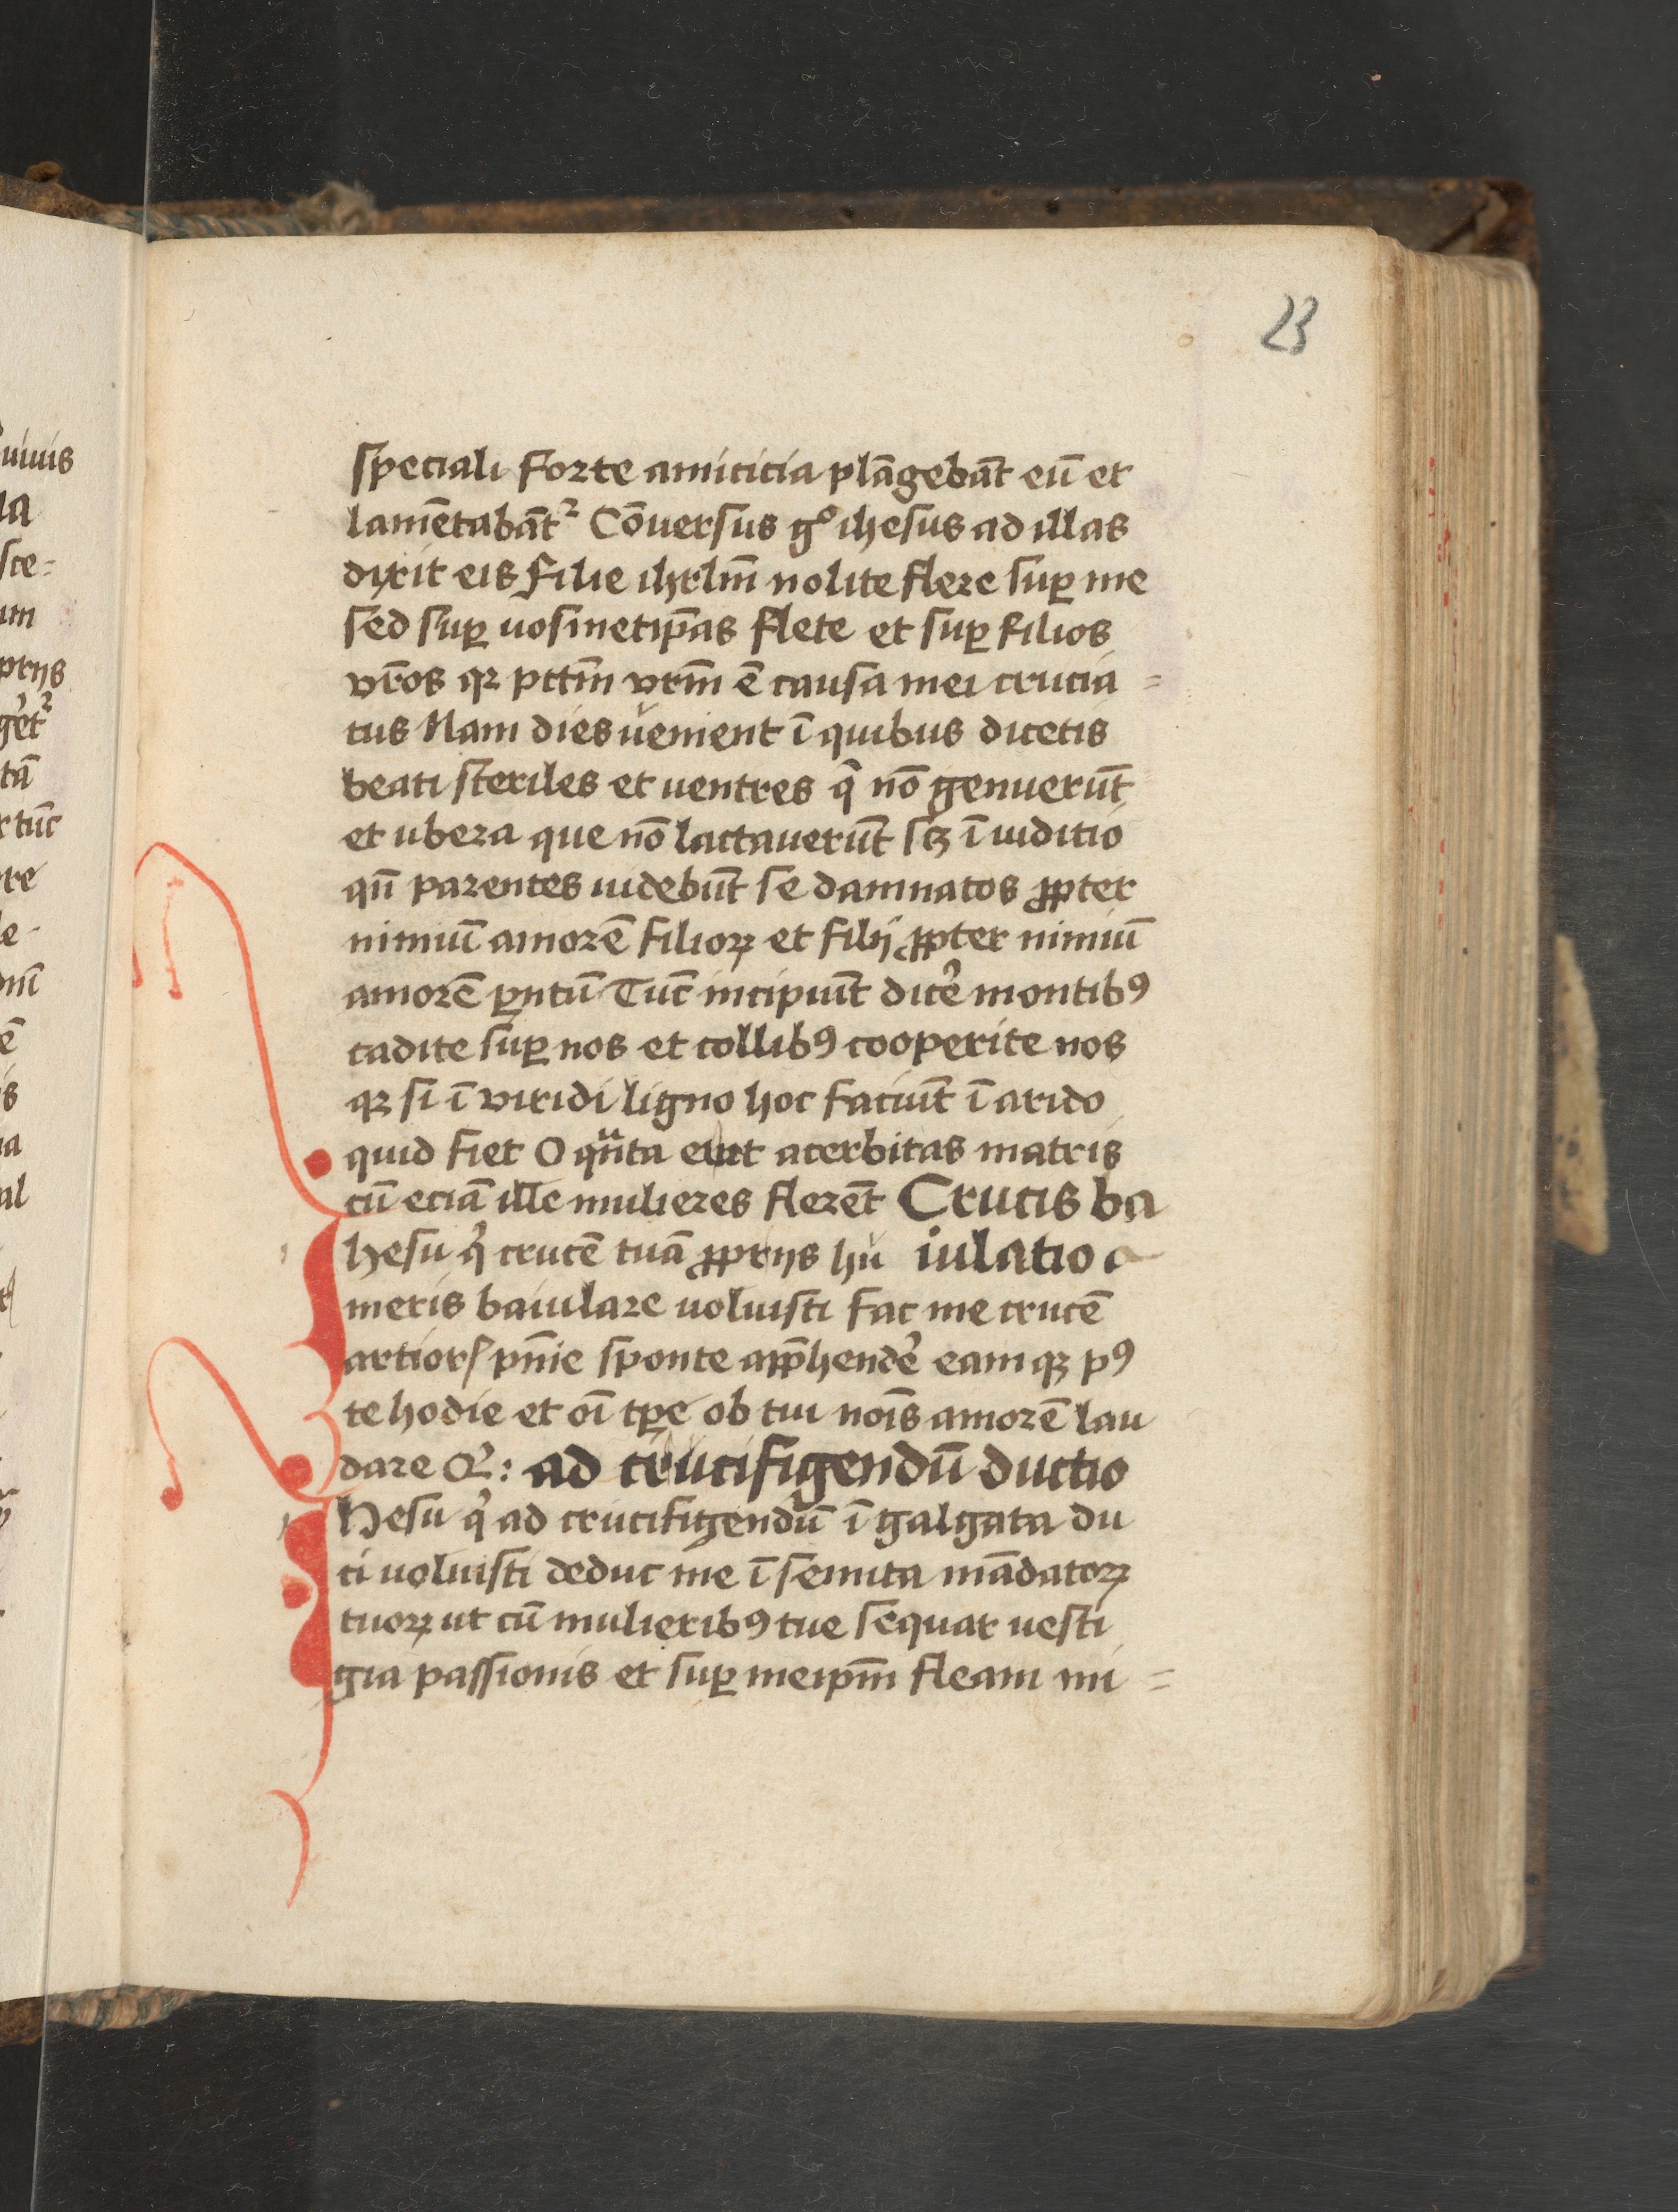 23
speciali forte amicicia plāgebāt eū et
lamētabātꝛ Cōuersus gͦ ihesus ad illas
dixit eis filie ihrlm̄ nolite flere suꝑ me
sed suꝑ uosmetip̄as flete et suꝑ filios
vr̄os qꝛ pctm̄ vrm̄ ē causa mei crucia=
tus Nam dies uenient ī quibus dicetis
beati steriles et uentres q̄ nō genuerūt
et ubera que nō lactauerūt sꝫ ī iuditio
qn̄ parentes uidebūt se damnatos ꝓpter
nimiū amorē filioꝝ et filij ꝓpter nimiū
amorē ꝑntū Tūc incipiūt dicē montibꝯ
cadite suꝑ nos et collibꝯ cooperite nos
qꝛ si ī viridi ligno hoc faciūt ī arido
quid fiet O qͣnta erat acerbitas matris
cū eciā ille mulieres flerēt Crucis ba
Ihesu qͥ crucē tuā ꝓprijs hu iulatio
meris baiulare uoluisti fac me crucē
artioris pn̄ie sponte app̄hendē eamqꝫ pꝯ
te hodie et oī tꝑe ob tui nōis amorē lau
dare &c: ad crucifigendū ductio
IHesu qͥ ad crucifigendū ī galgata du
ci uoluisti deduc me ī semita mādatoꝝ
tuoꝝ ut cū mulieribꝯ tue sequar uesti
gia passionis et suꝑ meipm̄ fleam mi=